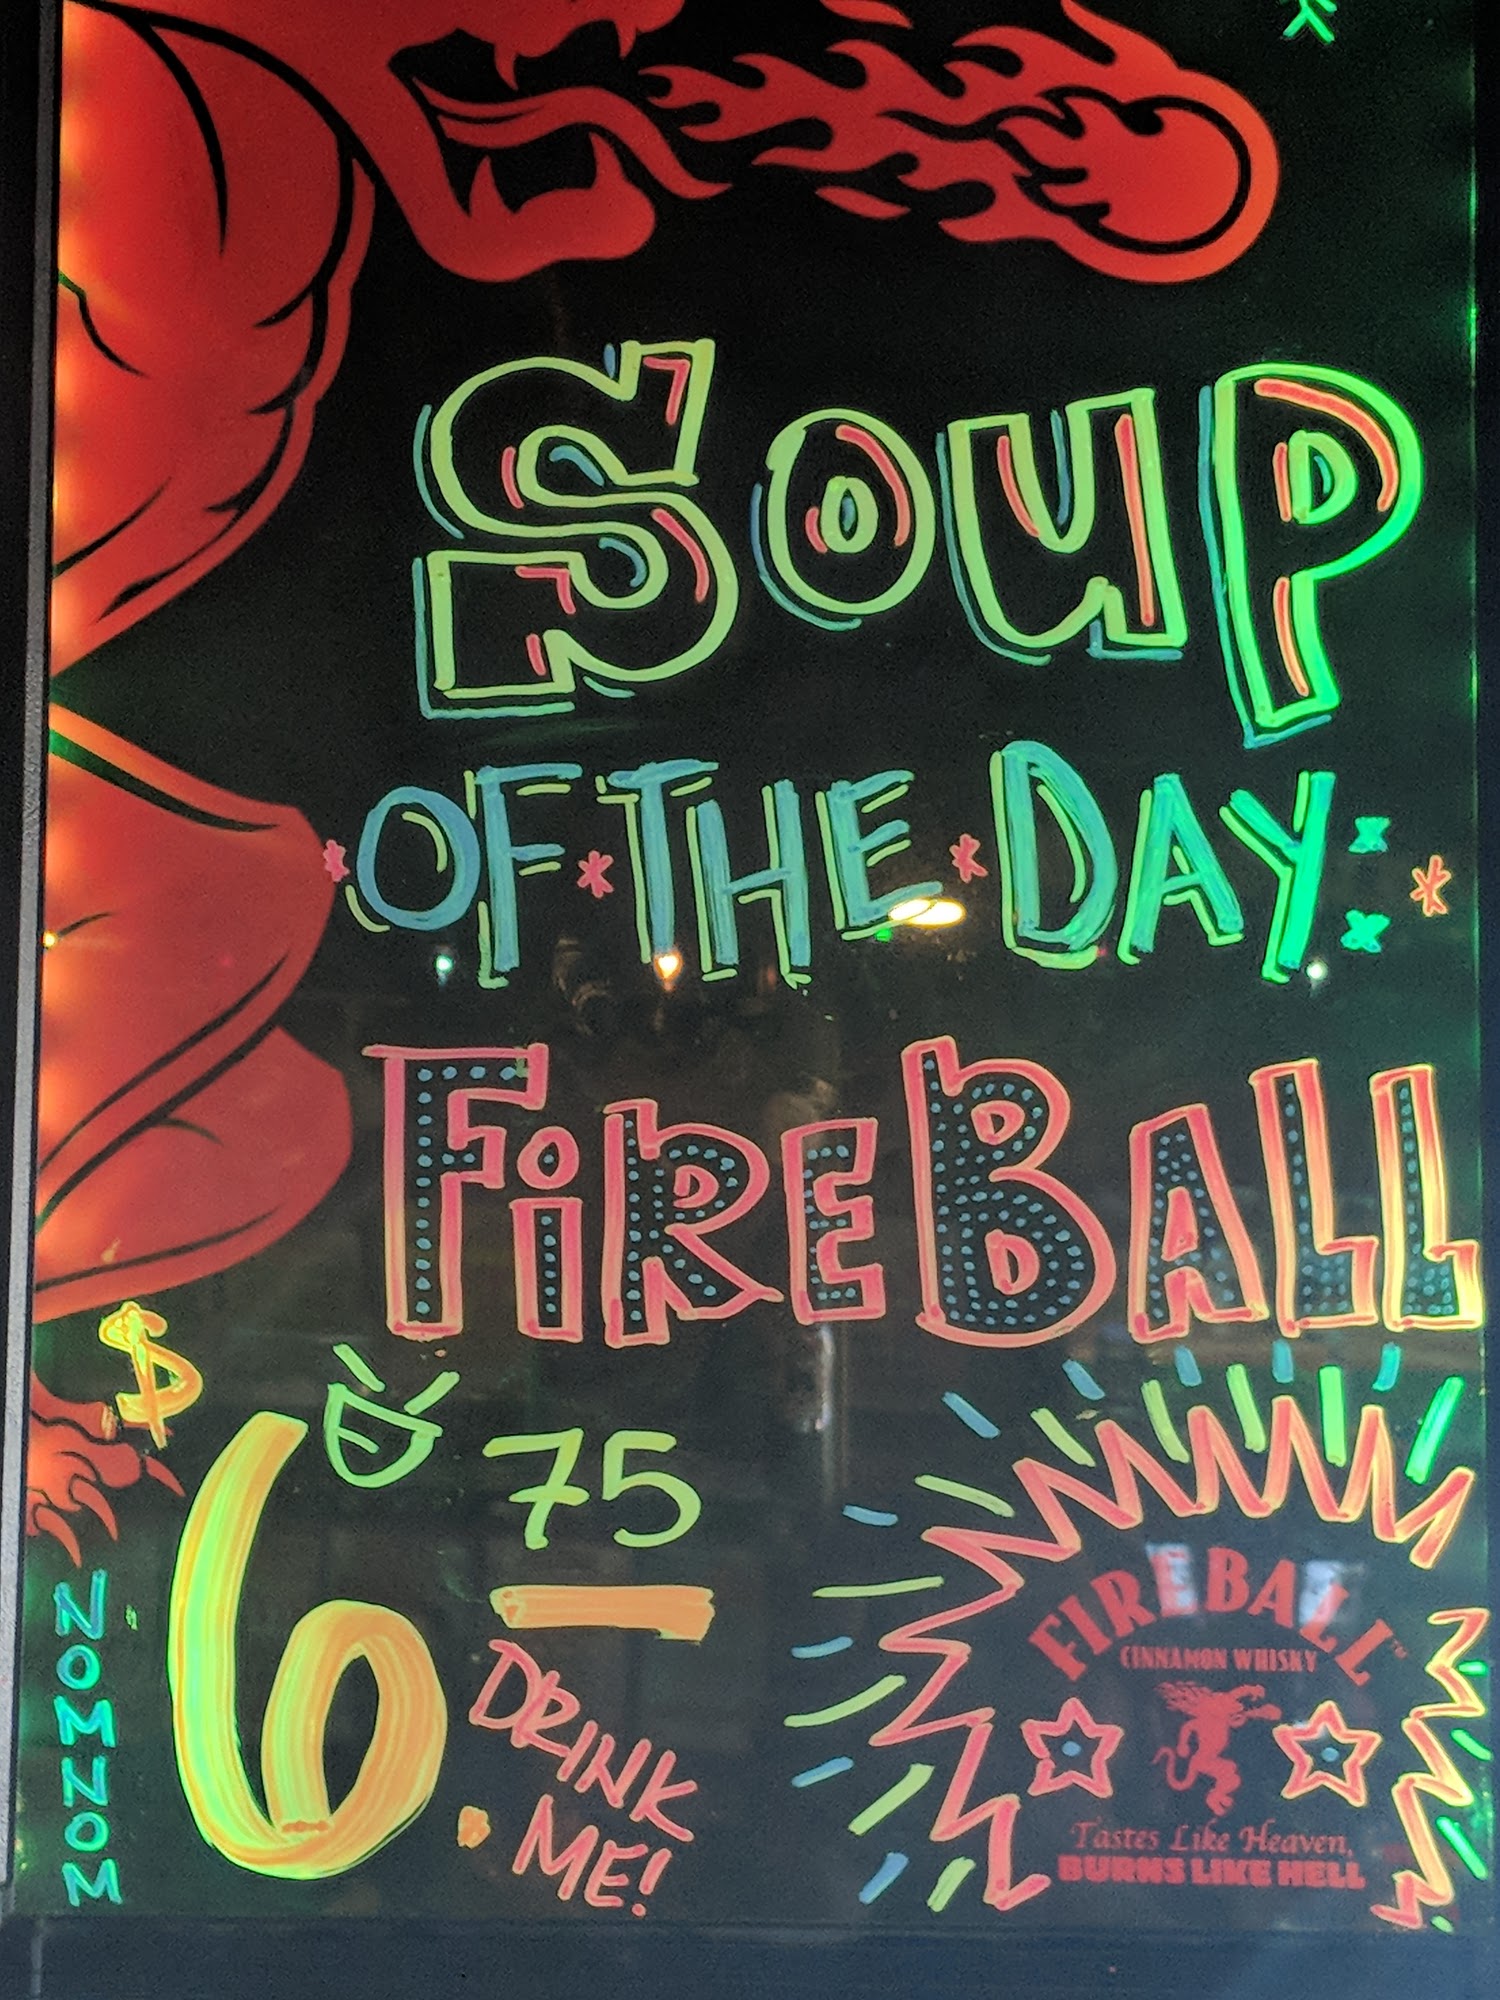 SOUP
OF * THE * DAY
FIREBALL
$6.75
DRINK
ME!
NOMNOM
FIREBALL™
CINNAMON WHISKY
Tastes Like Heaven,
BURNS LIKE HELL